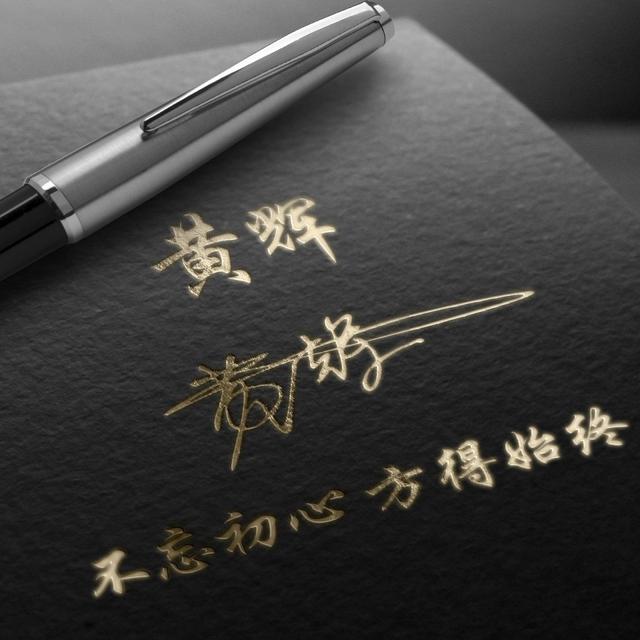 黄辉
黄辉
不忘初心 方得始终